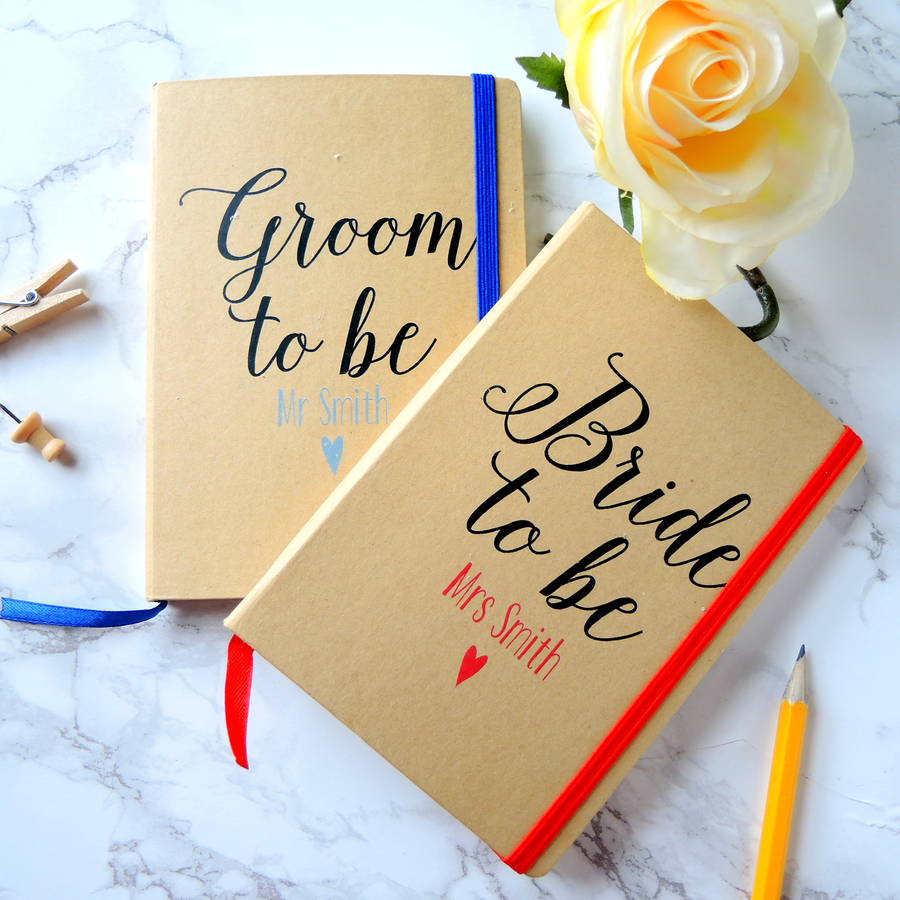 Groom
to be
Mr Smith
Bride
to be
Mrs Smith